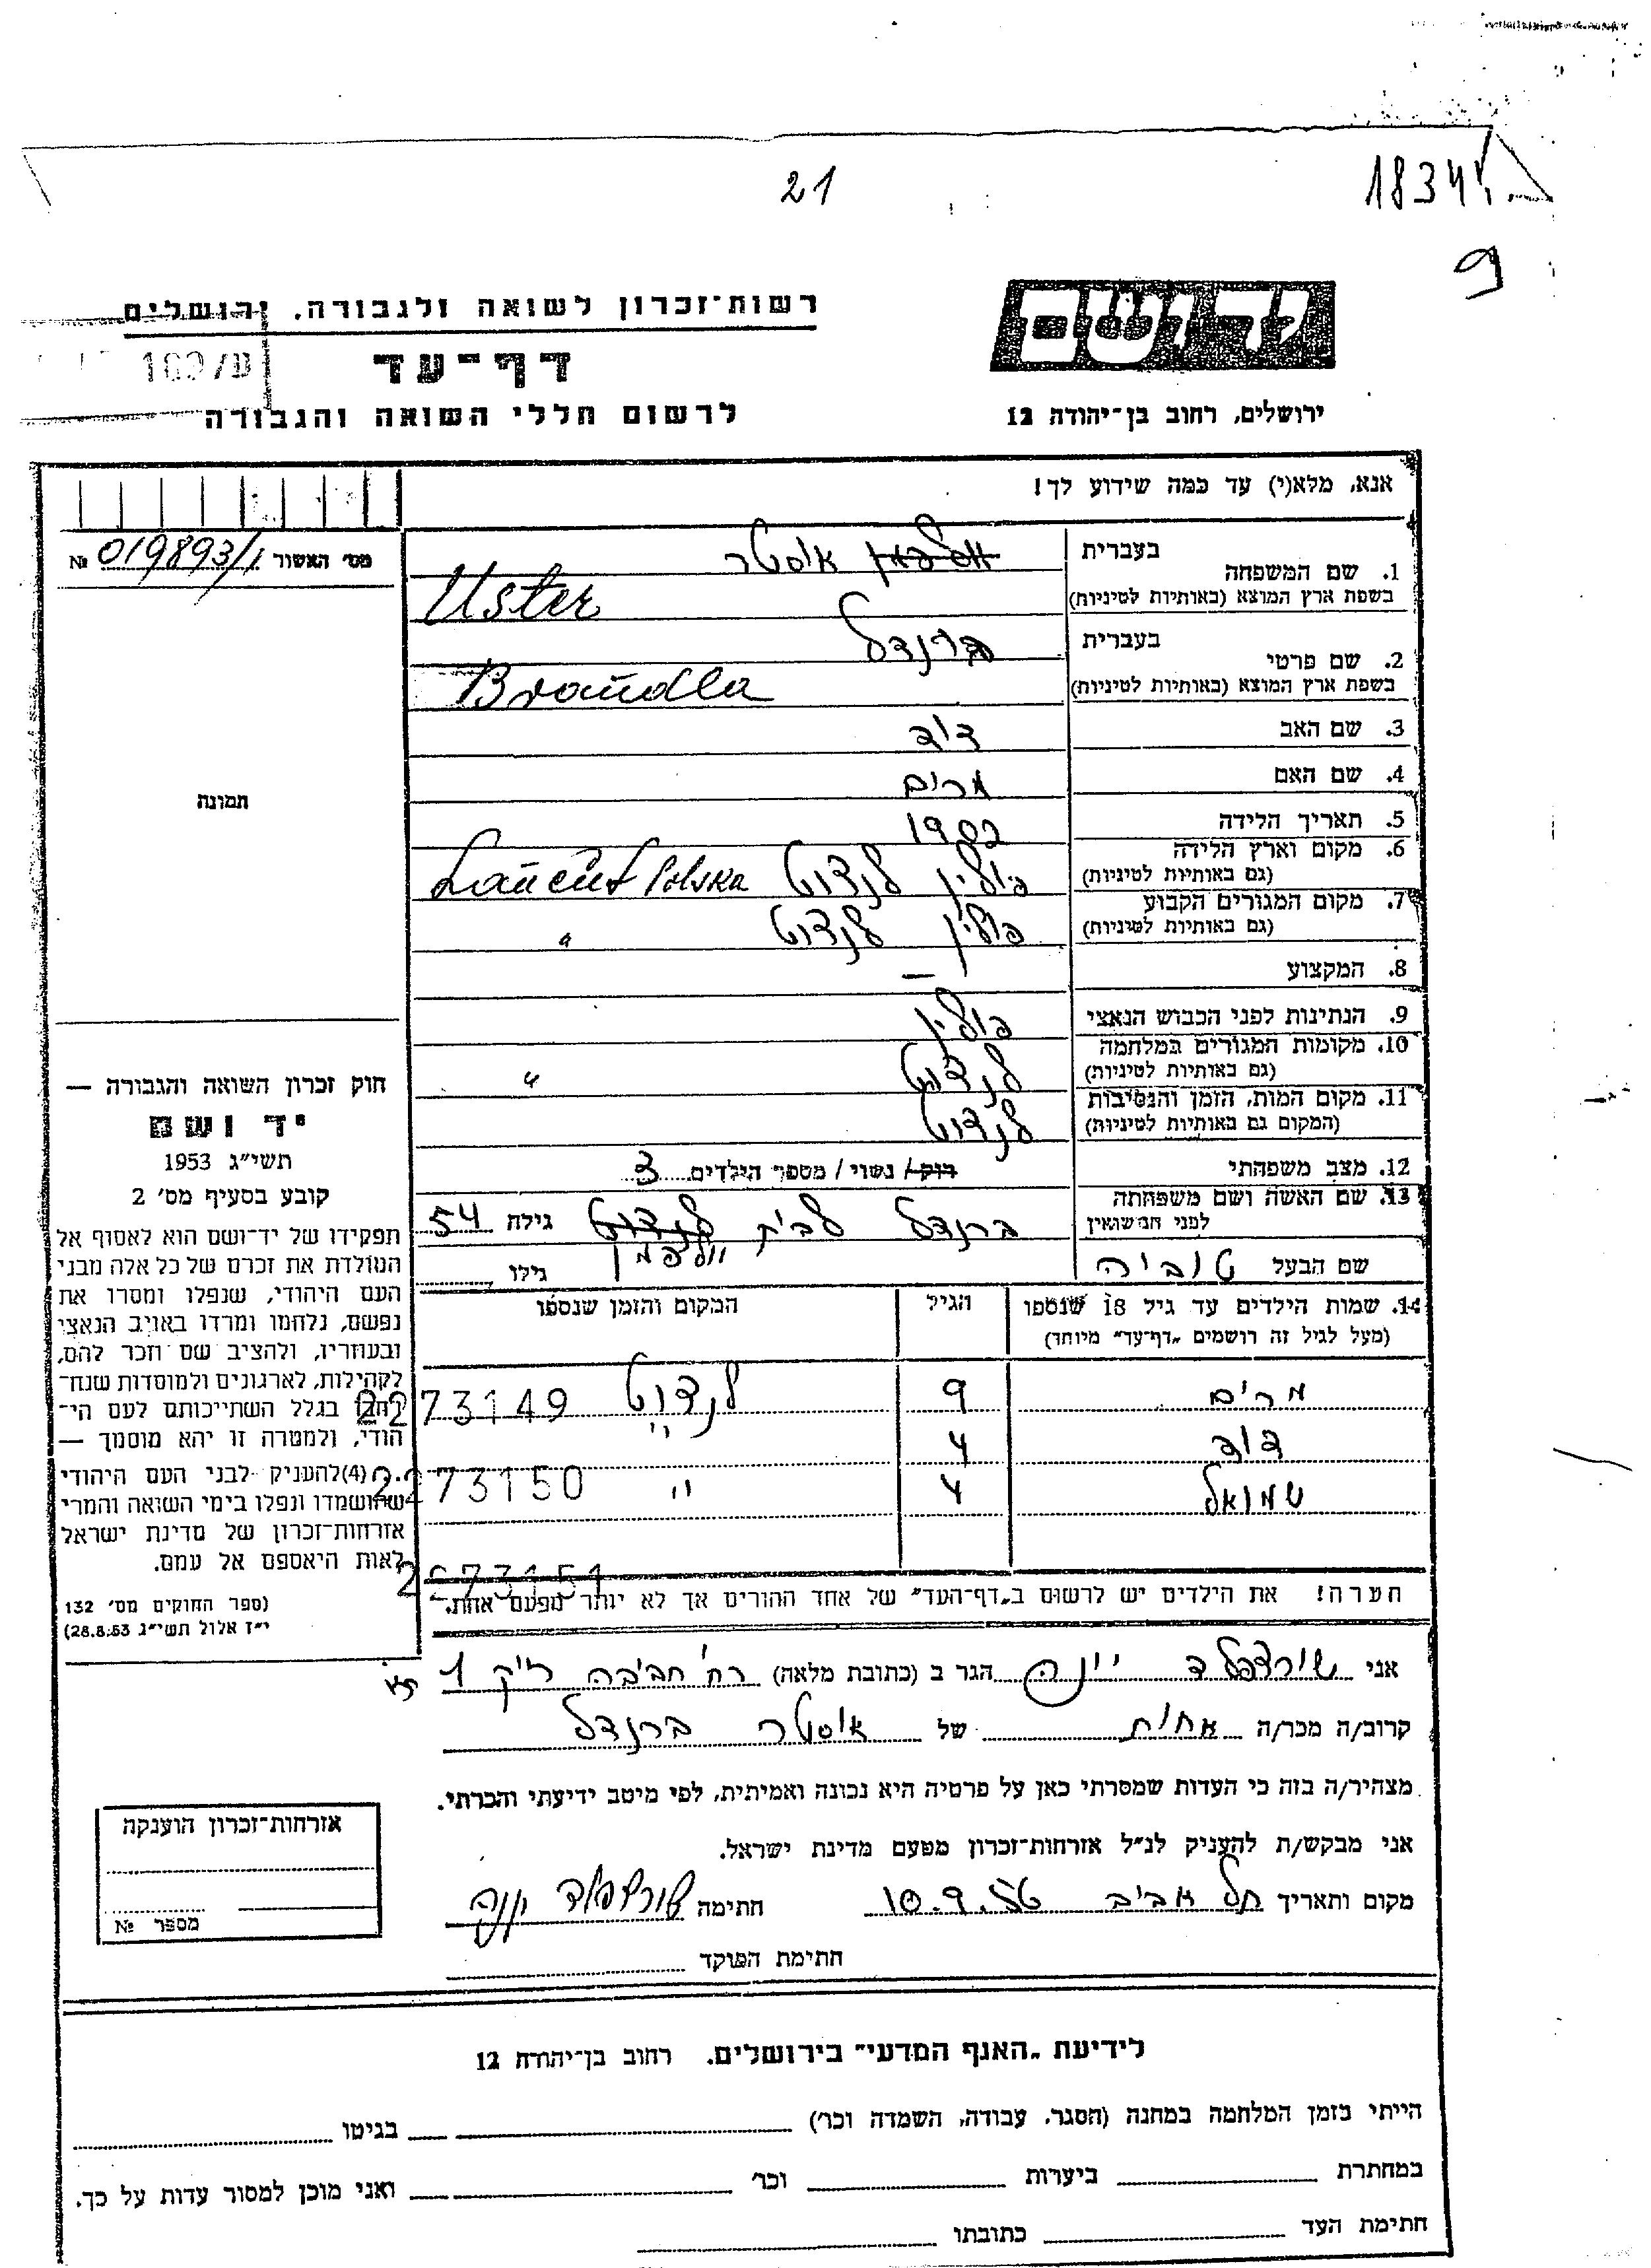 21
1834
9
רשות־זכרון לשואה ולגבורה. ירושלים
דף־עד
לרשום חללי השואה והגבורה
יד ושם
ירושלים, רחוב בן־יהודה 12
אנא, מלא(י) עד כמה שידוע לך!
מס׳ האשור 019893/1 №
תמונה
בעברית אוסטר
1. שם המשפחה
בשפת ארץ המוצא (באותיות לטיניות) Uster
בעברית ברנדל
2. שם פרטי
בשפת ארץ המוצא (באותיות לטיניות) Brandla
3. שם האב דוד
4. שם האם מרים
5. תאריך הלידה 1902
6. מקום וארץ הלידה
(גם באותיות לטיניות) פולין לנדוט Lańcut Polska
7. מקום המגורים הקבוע
(גם באותיות לטיניות) פולין לנדוט "
8. המקצוע —
9. הנתינות לפני הכבוש הנאצי פולין
10. מקומות המגורים במלחמה
(גם באותיות לטיניות) לנדוט "
11. מקום המות, הזמן והנסיבות
(המקום גם באותיות לטיניות) לנדוט
12. מצב משפחתי רוק/ נשוי / מספר הילדים 3
13. שם האשה ושם משפחתה
לפני הנשואין ברנדל לבית לנדוט גילה 54
וולפמן
שם הבעל טוביה גילו
14. שמות הילדים עד גיל 18 שנספו הגיל המקום והזמן שנספו
(מעל לגיל זה רושמים „דף־עד״ מיוחד)
מרים 9 לנדוט 2273149
דוד 4 "
שמואל 4 " 2273150
2273151
הערה! את הילדים יש לרשום ב„דף־העד״ של אחד ההורים אך לא יותר מפעם אחת.
חוק זכרון השואה והגבורה —
יד ושם
תשי״ג 1953
קובע בסעיף מס׳ 2
תפקידו של יד־ושם הוא לאסוף אל
המולדת את זכרם של כל אלה מבני
העם היהודי, שנפלו ומסרו את
נפשם, נלחמו ומרדו באויב הנאצי
ובעוזריו, ולהציב שם וזכר להם,
לקהילות, לארגונים ולמוסדות שנח־
רבו בגלל השתייכותם לעם הי־
הודי, ולמטרה זו יהא מוסמך —
(4) להעניק לבני העם היהודי
שהושמדו ונפלו בימי השואה והמרי
אזרחות־זכרון של מדינת ישראל
לאות היאספם אל עמם.
(ספר החוקים מס׳ 132
י״ז אלול תשי״ג 28.8.53)
אני שורצפלד יונה הגר ב (כתובת מלאה) רח׳ חביבה רייק 1
קרוב/ה מכר/ה אחות של אוסטר ברנדל
מצהיר/ה בזה כי העדות שמסרתי כאן על פרטיה היא נכונה ואמיתית, לפי מיטב ידיעתי והכרתי.
אני מבקש/ת להעניק לנ״ל אזרחות־זכרון מטעם מדינת ישראל.
מקום ותאריך תל אביב 10.9.56 חתימה שורצפלד יונה
חתימת הפוקד
אזרחות־זכרון הוענקה
מספר №
לידיעת „האגף המדעי״ בירושלים. רחוב בן־יהודה 12
הייתי בזמן המלחמה במחנה (הסגר, עבודה, השמדה וכר׳) בגיטו
במחתרת ביערות וכר׳ ואני מוכן למסור עדות על כך.
חתימת העד כתובתו